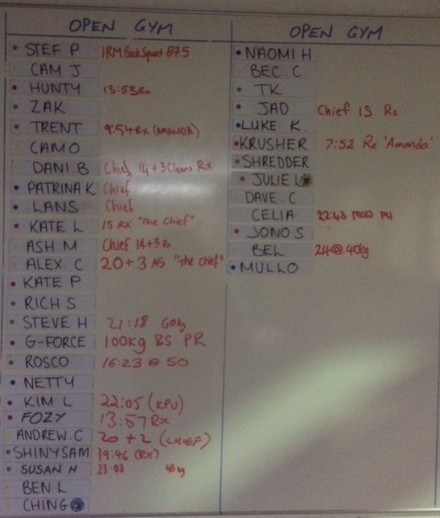 OPEN GYM
STEF P 1RM Back Squat 87.5
CAM J
HUNTY 13:53Rx
ZAK
TRENT 9:54Rx (AMANDA)
CAMO
DANI B Chief 14+3Cleans Rx
PATRINA K Chief
LANS Chief
KATE L 15 RX "The Chief"
ASH M Chief 14+3
ALEX C 20+3 "The Chief"
KATE P
RICH S
STEVE H 21:18
G-FORCE 100kg BS PR
ROSCO 16:23 @ 50
NETTY
KIM L 22:05 (KPU)
FOZY 13:57 Rx
ANDREW.C 20 +2 (CHIEF)
SHINYSAM 19:46 (RX)
SUSAN H 23:08
BEN L
CHING
OPEN GYM
NAOMI H
BEC C
TK
JAD Chief 15 Rx
LUKE K.
KRUSHER 7:52 Rx 'Amanda'
SHREDDER
JULIE L
DAVE C
CELIA 22:43
JONO S
BEL 24@40kg
MULLO